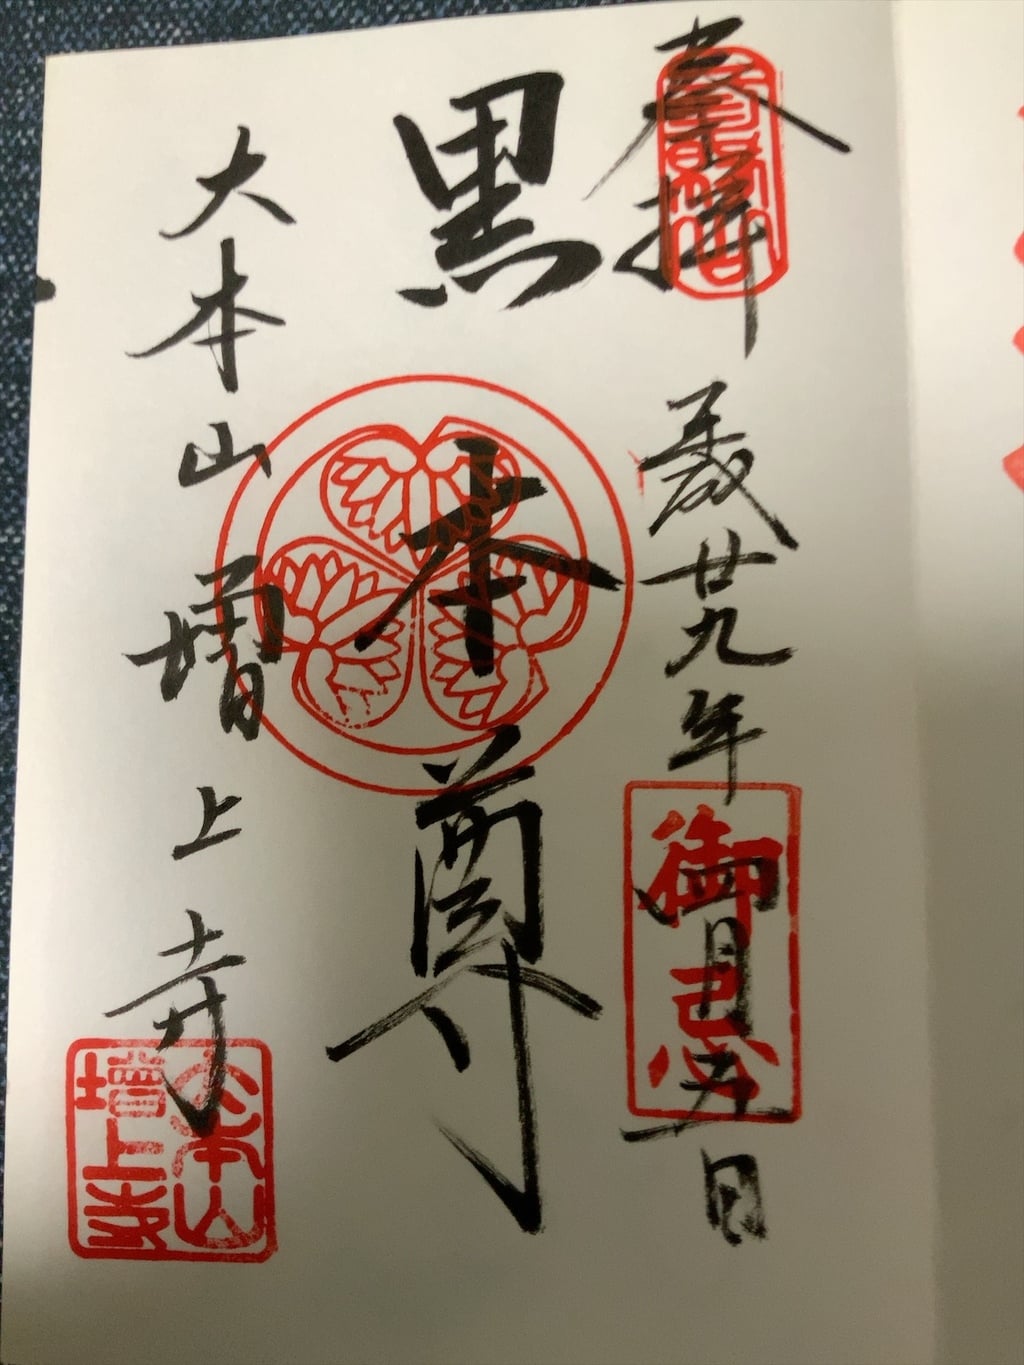 奉拝
平成廿九年四月五日
御忌
黒本尊
大本山増上寺
大本山
增上寺